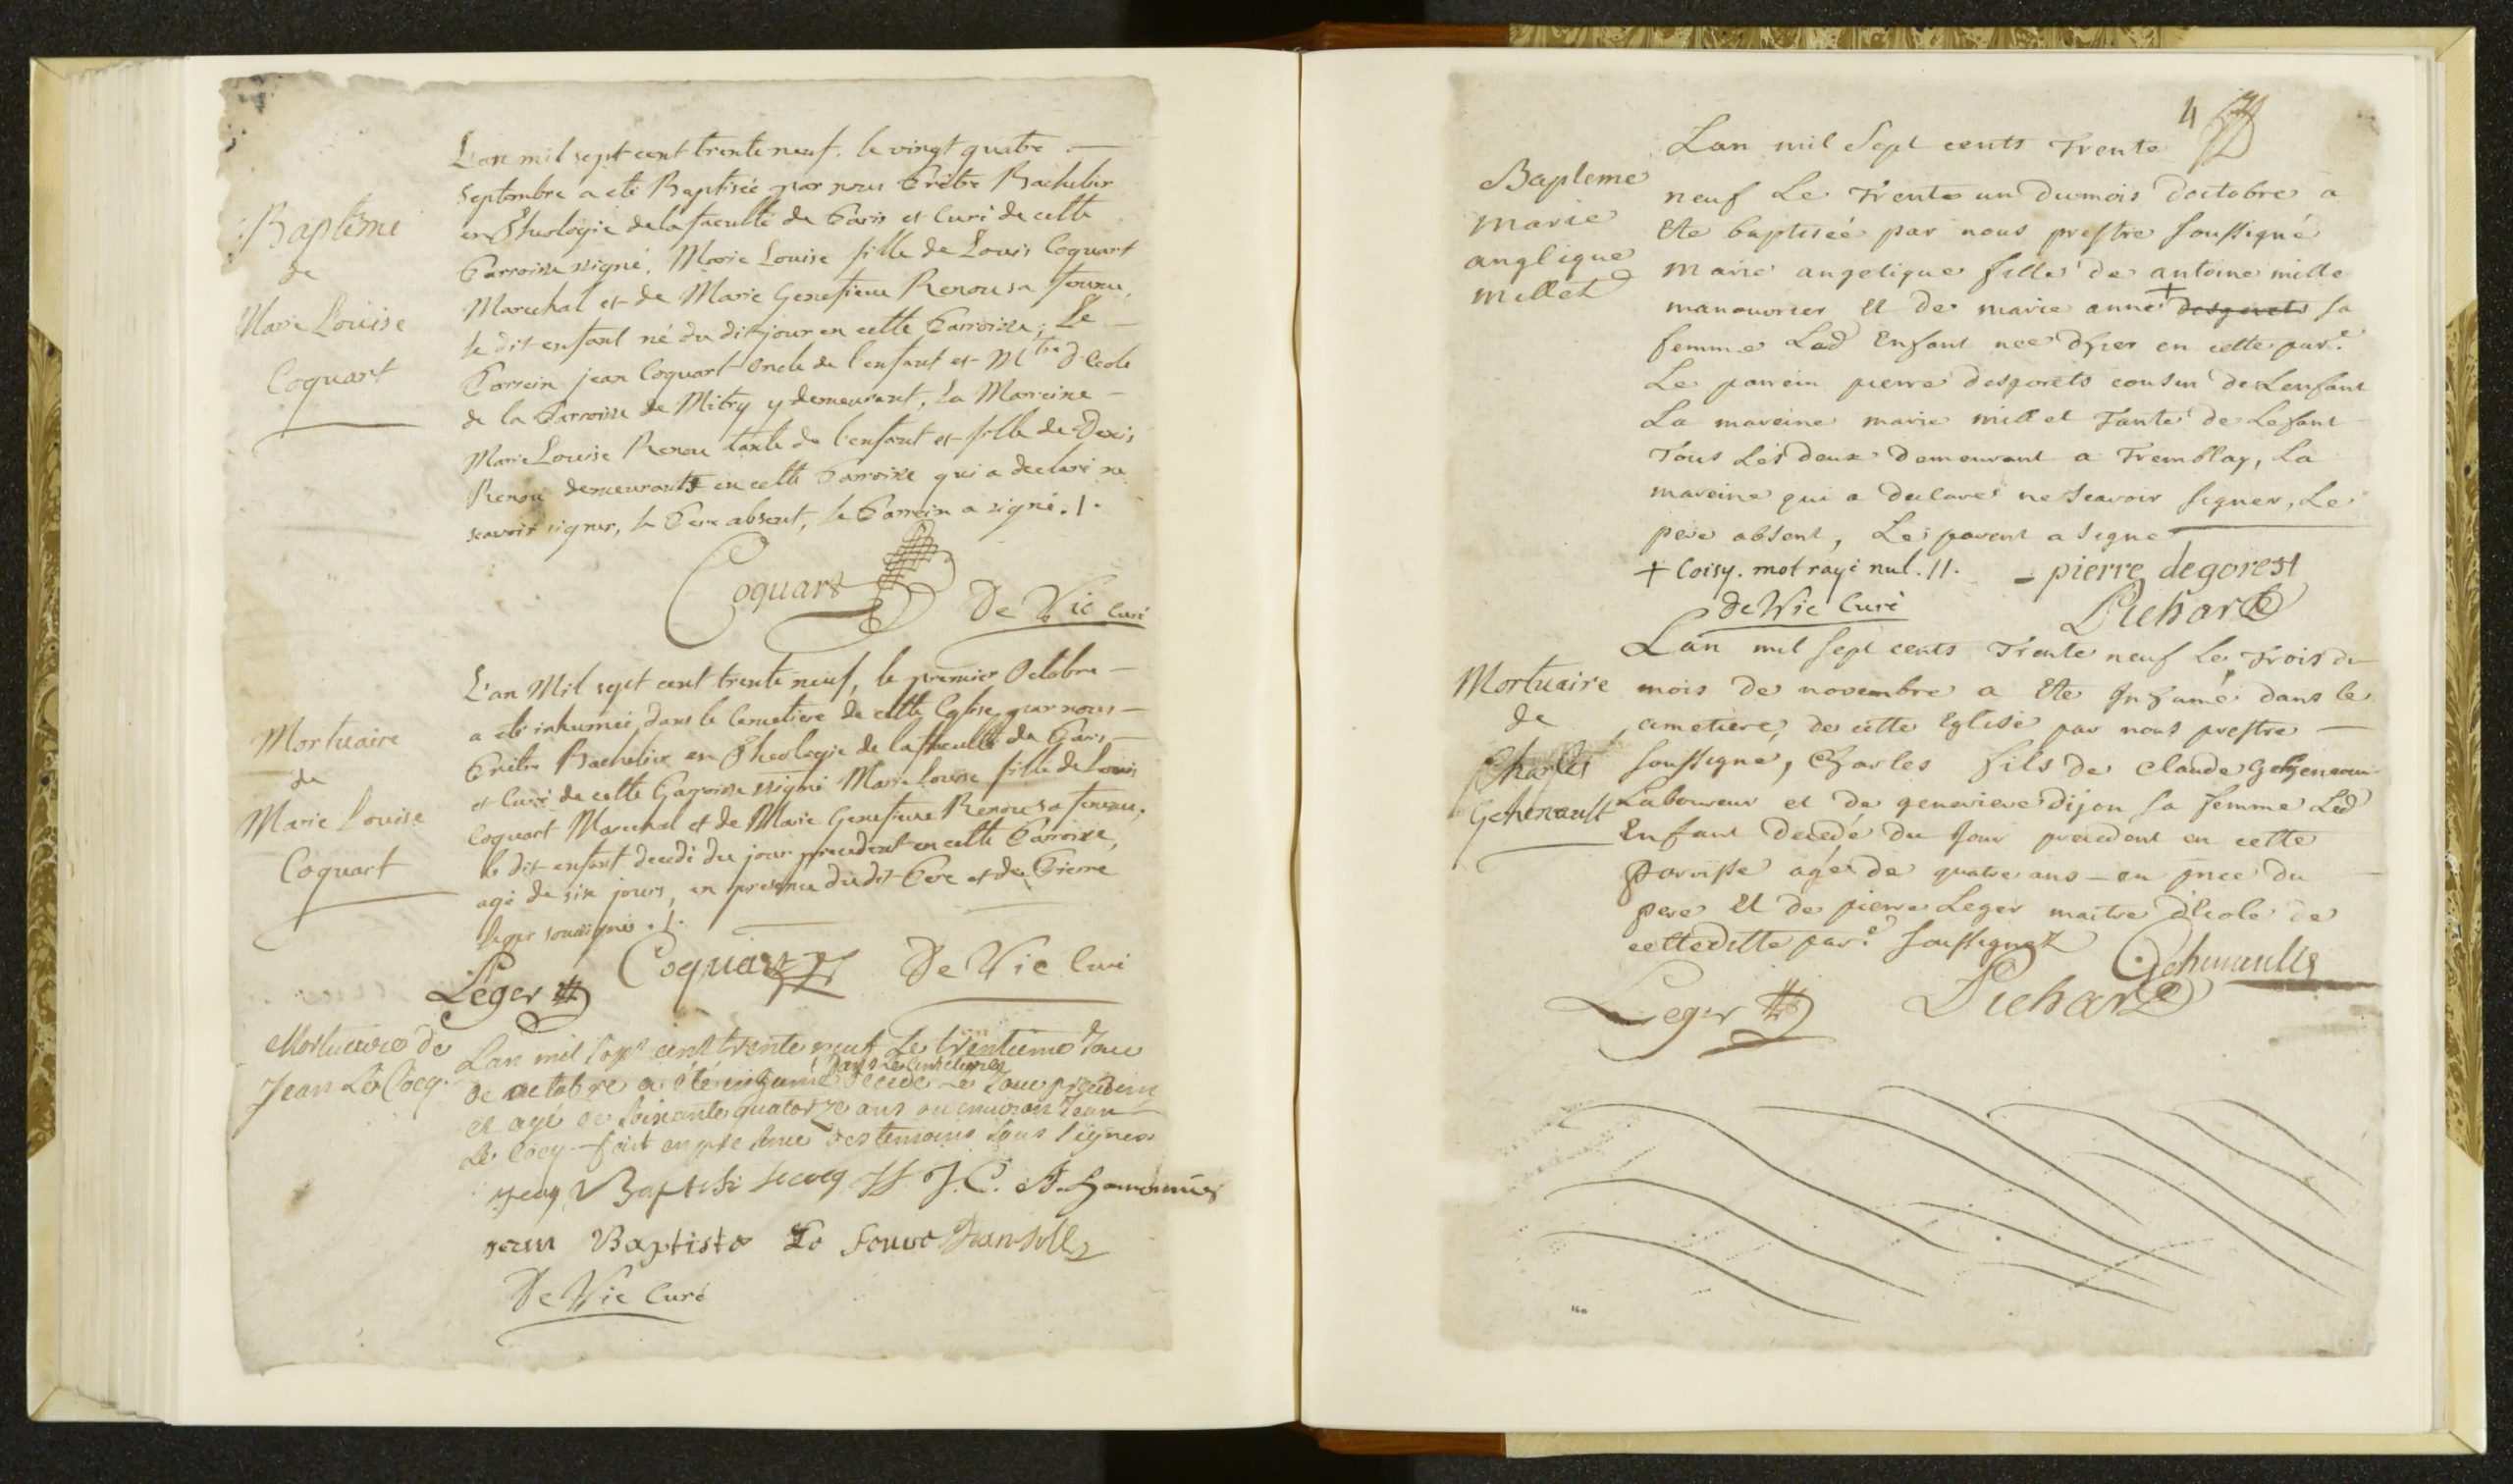 Baptême
de
Marie Louise
Coquart
L'an mil sept cent trente neuf, le vingt quatre
septembre a eté Baptisée par nous Prêtre Bachelier
en Theologie de la faculté de Paris et Curé de cette
Parroisse signé, Marie Louise fille de Louis Coquart
Marechal et de Marie Genefieve Renou sa femme,
le dit enfant né du dit jour en cette Parroisse; Le
Parrein jean Coquart Oncle de l'enfant et Mtre d'Ecole
de la Parroisse de Mitry y demeurant, La Marreine
Marie Louise Renou tante de l'enfant et fille de Denis
Renou demeurants en cette Parroisse qui a declaré ne
scavoir signer, le Pere absent, le Parrein a signé ./.
Coquart
De Vic Curé
Mortuaire
de
Marie Louise
Coquart
L'an Mil sept cent trente neuf, le premier Octobre
a eté inhumée dans le Cemetiere de cette Eglise, par nous
Prêtre Bachelier en Theologie de la faculté de Paris
et Curé de cette Parroisse signé Marie Louise fille de Louis
Coquart Marechal et de Marie Genefieve Renou sa femme.
le dit enfant decedé du jour precedent en cette Parroisse,
agé de six jours, en presence du dit Pere et de Pierre
leger soussignés ./.
Leger
Coquart
De Vic Curé
Mortuaire de
Jean Le Cocq.
Lan mil sept cent trente neuf Le trentieme Jour
dans le cimetierre
de octobre a été inhumé decede Le Jour precedent
et agé de soixante quatorze ans ou environ Jean
Le Cocq fait en presence des temoins sous signes
jean Baptiste lecocq J. C.
jean Baptiste Le
De Vic Curé
4
Lan mil Sept cents Trente
Bapteme
marie
anglique
millet
neuf Le Trente un du mois doctobre a
Ete baptiseé par nous prestre soussigné
marie angelique fille de antoine mille
manouvrier et de marie anne + desgorets sa
femme Lad Enfant née dhier en cette par.e
Le parrein pierre desgorets cousin de Lenfant
La mareine marie millet Tante de Lefant
Tous Les deux demeurant a Tremblay, La
mareine qui a declaré ne scavoir signer, Le
pere absent, Le parent a signe
+ Coisy. mot rayé nul .//.
pierre degorest
de Vic Curé
Pichard
Mortuaire
de
Charles
Gehenault
Lan mil sept cents Trente neuf Le Trois du
mois de novembre a Ete Inhumé dans le
cimetiere, de cette Eglise par nous prestre
soussigné, Charles fils de Claude
Laboureur et de genevieve dijon sa femme Led
Enfant decedé du Jour precedent en cette
paroisse agé de quatre ans en pnce du
pere et de pierre Leger maitre d'Ecole de
cetteditte par.e soussignez
Leger
Pichard